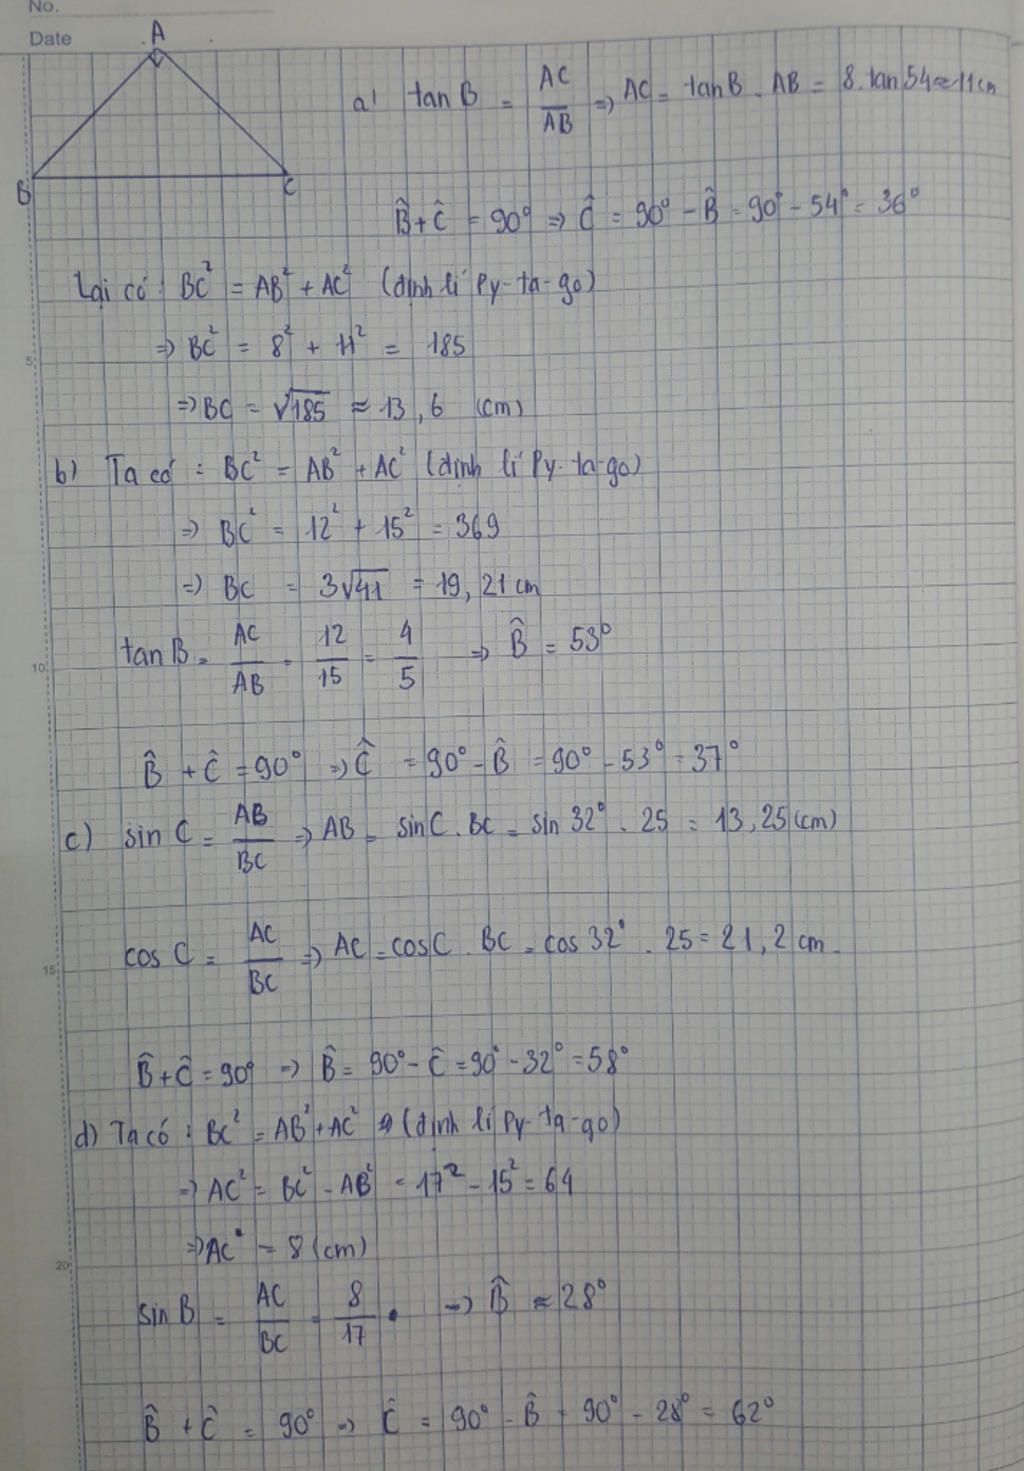 No.
Date
A
B
C
a) tan B = AC/AB => AC = tan B . AB = 8 . tan 54 ≈ 11 cm
B̂ + Ĉ = 90° => Ĉ = 90° - B̂ = 90° - 54° = 36°
Lại có : BC² = AB² + AC² (định lí Py-ta-go)
=> BC² = 8² + 11² = 185
5
=> BC = √185 ≈ 13,6 (cm)
b) Ta có : BC² = AB² + AC² (định lí Py-ta-go)
=> BC² = 12² + 15² = 369
=> BC = 3√41 = 19,21 cm
tan B = AC/AB = 12/15 = 4/5 => B̂ = 53°
10
B̂ + Ĉ = 90° => Ĉ = 90° - B̂ = 90° - 53° = 37°
c) sin C = AB/BC => AB = sin C . BC = sin 32° . 25 = 13,25 (cm)
cos C = AC/BC => AC = cos C . BC = cos 32° . 25 = 21,2 cm.
15
B̂ + Ĉ = 90° => B̂ = 90° - Ĉ = 90° - 32° = 58°
d) Ta có : BC² = AB² + AC² (định lí Py-ta-go)
=> AC² = BC² - AB² = 17² - 15² = 64
=> AC = 8 (cm)
20
sin B = AC/BC = 8/17 => B̂ ≈ 28°
B̂ + Ĉ = 90° => Ĉ = 90° - B̂ = 90° - 28° = 62°